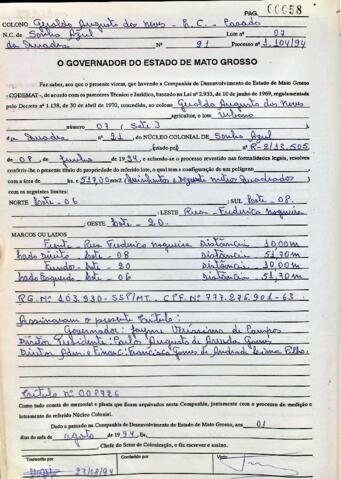 PAG. 00058
COLONO Geraldo Augusto das Neves - B.C. - Casado
N.C. de Sonho Azul Lote nº 07
da Quadra Nº 91 Processo nº 1.104/94
O GOVERNADOR DO ESTADO DE MATO GROSSO
Faz saber, aos que o presente virem, que havendo a Companhia de Desenvolvimento do Estado de Mato Grosso
- CODEMAT -, de acordo com os pareceres Técnico e Jurídico, baseado na Lei nº 2.933, de 10 de junho de 1969, regulamentada
pelo Decreto nº 1.138, de 30 de abril de 1970, concedido, ao colono Geraldo Augusto das Neves
agricultor, o lote Urbano
número 07 (Sete)
a Quadra nº 91 DO NÚCLEO COLONIAL DE Sonho Azul
nº R-2/13.505
de 08 de Junho 1994, e achando-se o processo revestido nas formalidades legais, resolveu
conferir-lhe o presente título de propriedade do referido lote, o qual tem a configuração de um polígono
com a área de ha. 517,00 m² (Quinhentos e dezessete metros Quadrados)
com os seguintes limites:
NORTE Lote - 06 ; SUL Lote - 08.
; LESTE Rua - Frederico Nogueira
; OESTE Lote - 20.
MARCOS OU LADOS
Frente - Rua Frederico Nogueira Distância 10,00m
Lado Direito - Lote - 08 Distância 51,70m
Fundos - Lote - 20 Distância 10,00m
Lado Esquerdo - Lote - 06 Distância 51,70m
RG. Nº 403.930-SSP/MT. CPF. Nº 777.276.901-63
Assinaram o presente Título:
Governador: Jayme Veríssimo de Campos
Diretor Presidente: Carlos Augusto de Arruda Gomes
Diretor Adm. e Financ: Francisco Gomes de Andrade Lima Filho.
Título nº 008726
Como tudo consta do memorial e planta que ficam arquivados nesta Companhia, juntamente com o processo de medição e
loteamento do referido Núcleo Colonial.
Dado e passado na Companhia de Desenvolvimento do Estado de Mato Grosso, aos 01
dias do mês de agosto de 1994, Eu,
Chefe do Setor de Colonização, o fiz escrever e assino.
Transcrito por
Conferido por
Visto
23/08/94